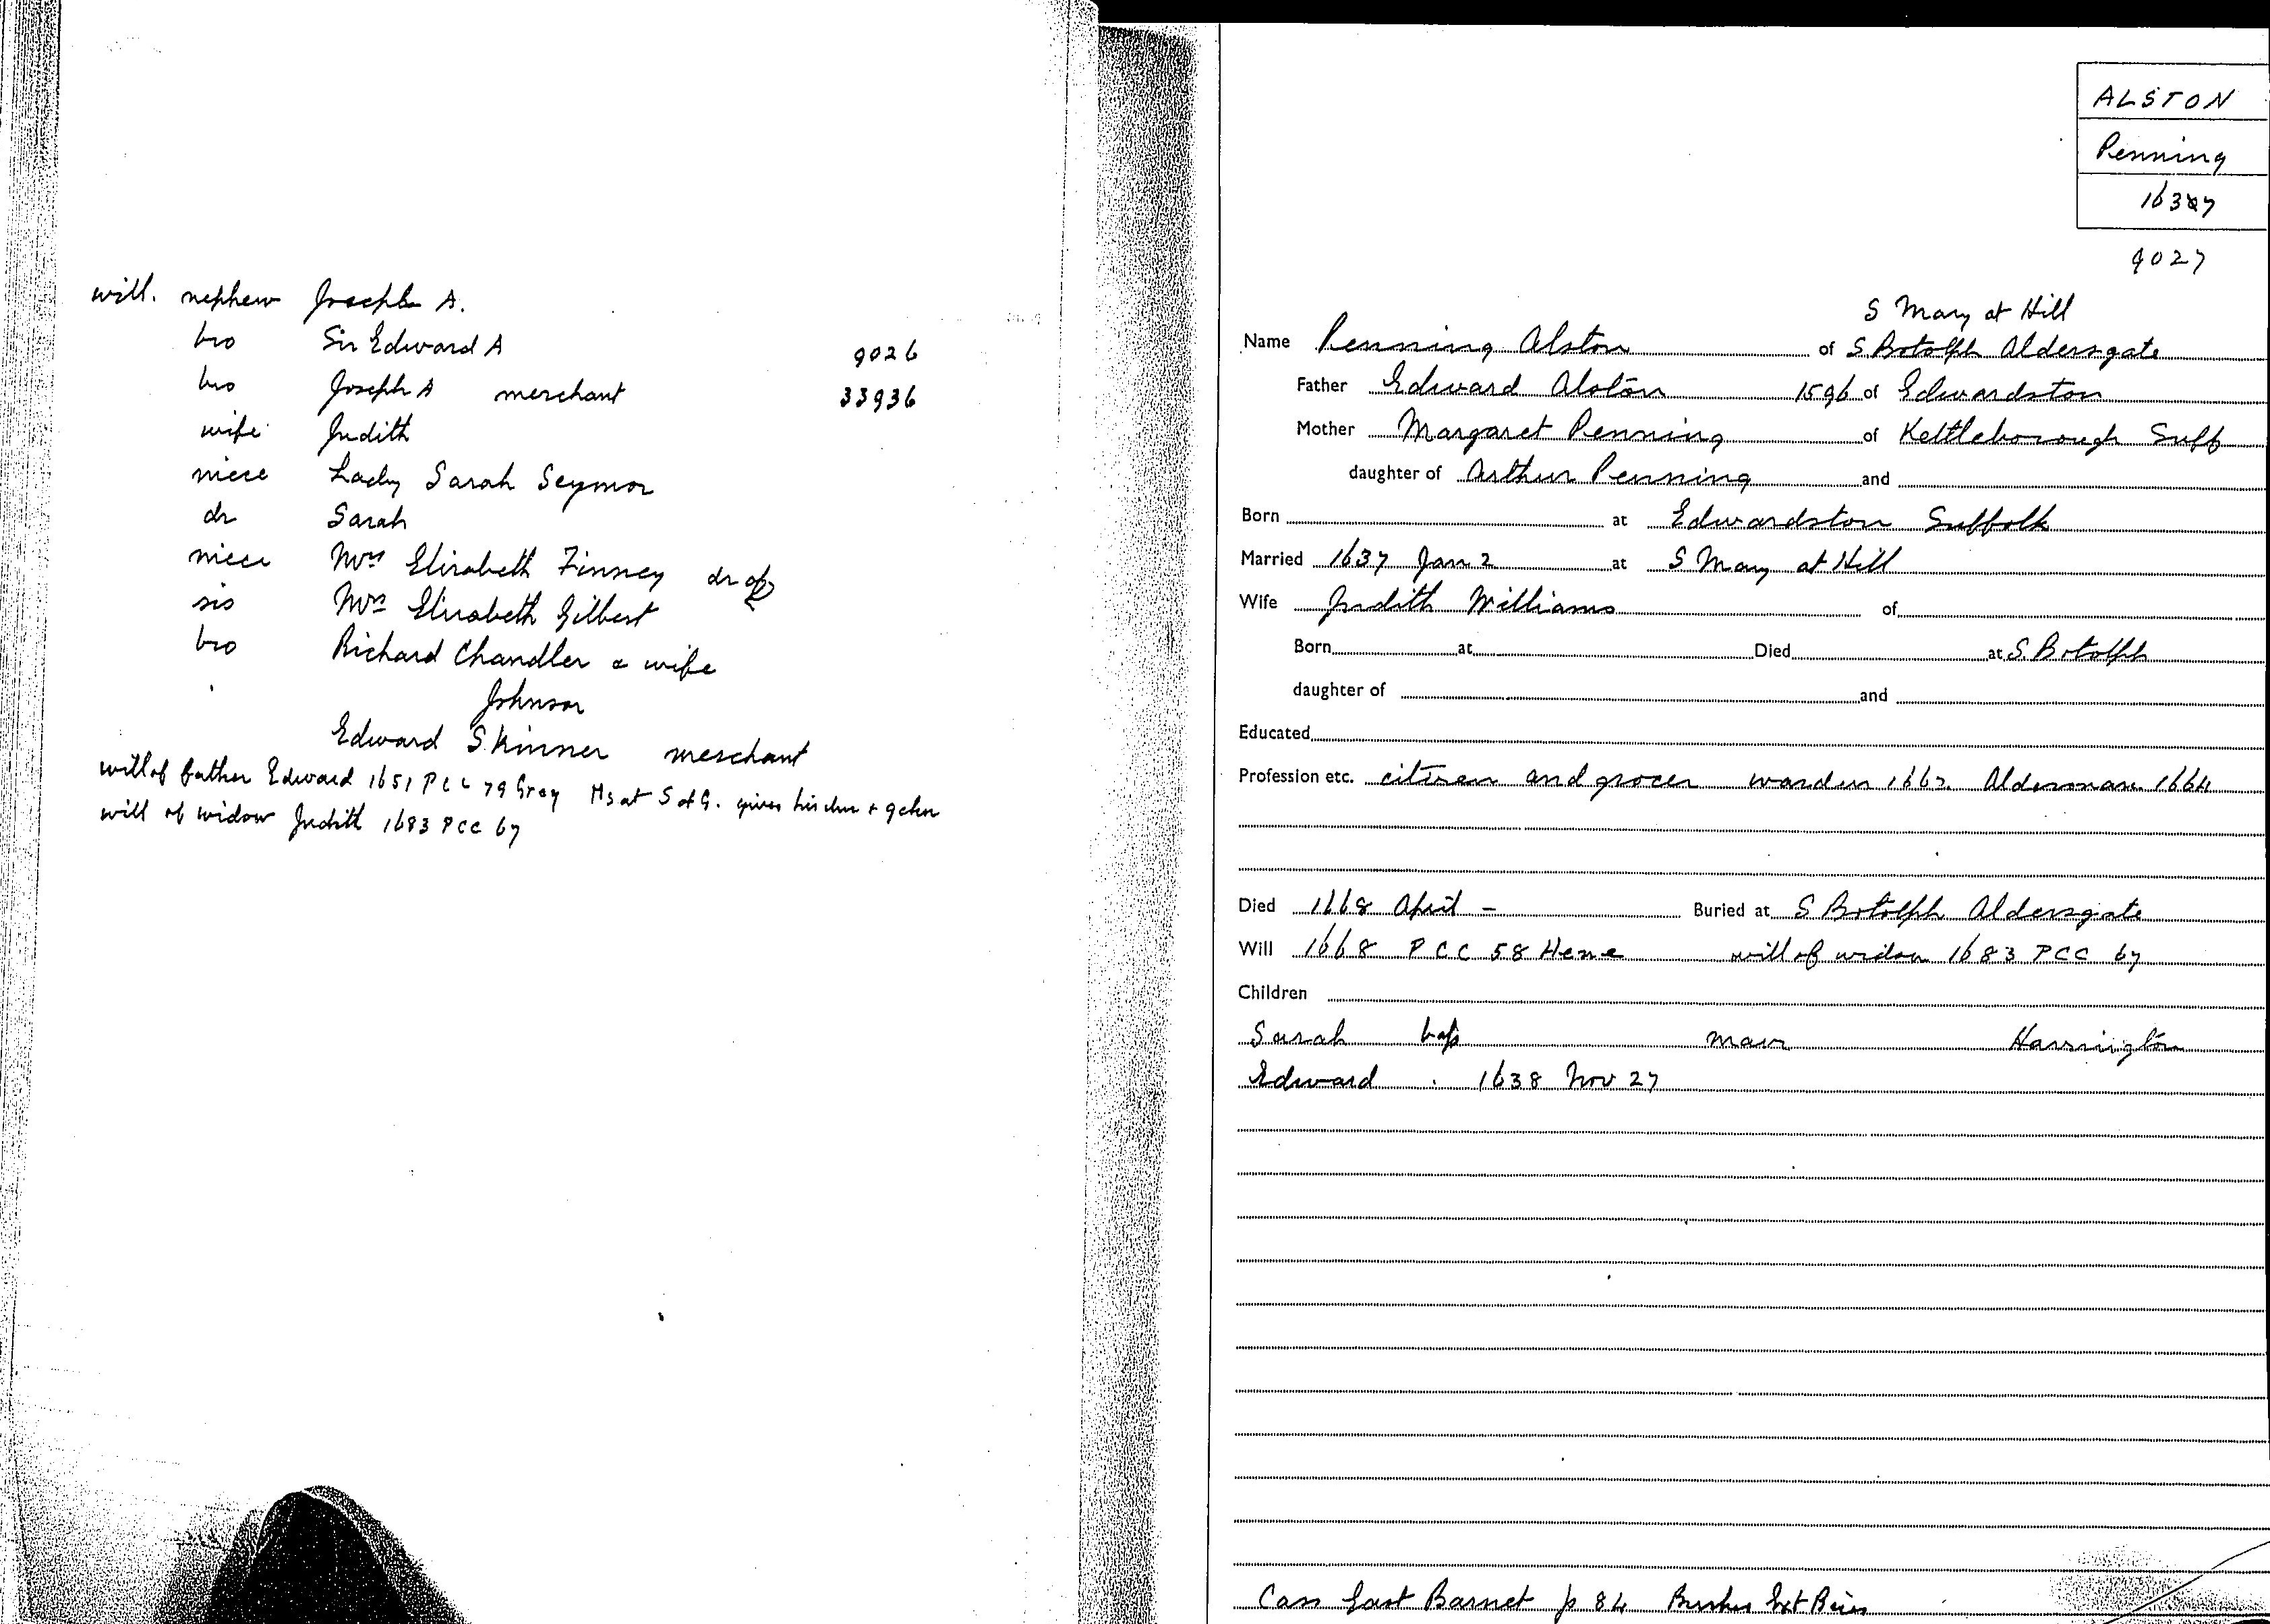 will. nephew Joseph A.
bro Sir Edward A 9026
bro Joseph A merchant 33936
wife Judith
niece Lady Sarah Seymor
dr Sarah
niece Mrs Elizabeth Finney dr of
sis Mrs Elizabeth Gilbert
bro Richard Chandler & wife
Johnson
Edward Skinner merchant
will of father Edward 1651 PCC 79 Grey Ms at S of G. gives his chn & gchn
will of widow Judith 1683 PCC 67
ALSTON
Penning
1637
9027
S Mary at Hill
Name Penning Alston of S Botolph Aldersgate
Father Edward Alston 1596 of Edwardston
Mother Margaret Penning of Kettleborough Suff
daughter of Arthur Penning and
Born at Edwardston Suffolk
Married 1637 Jan 2 at S Mary at Hill
Wife Judith Williams of
Born at Died at S. Botolph
daughter of and
Educated
Profession etc. citizen and grocer warden 1667. Alderman 1664
Died 1668 April - Buried at S Botolph Aldersgate
Will 1668 PCC 58 Hene will of widow 1683 PCC 67
Children
Sarah bap marr Harrington
Edward . 1638 Nov 27
Cass East Barnet p 84